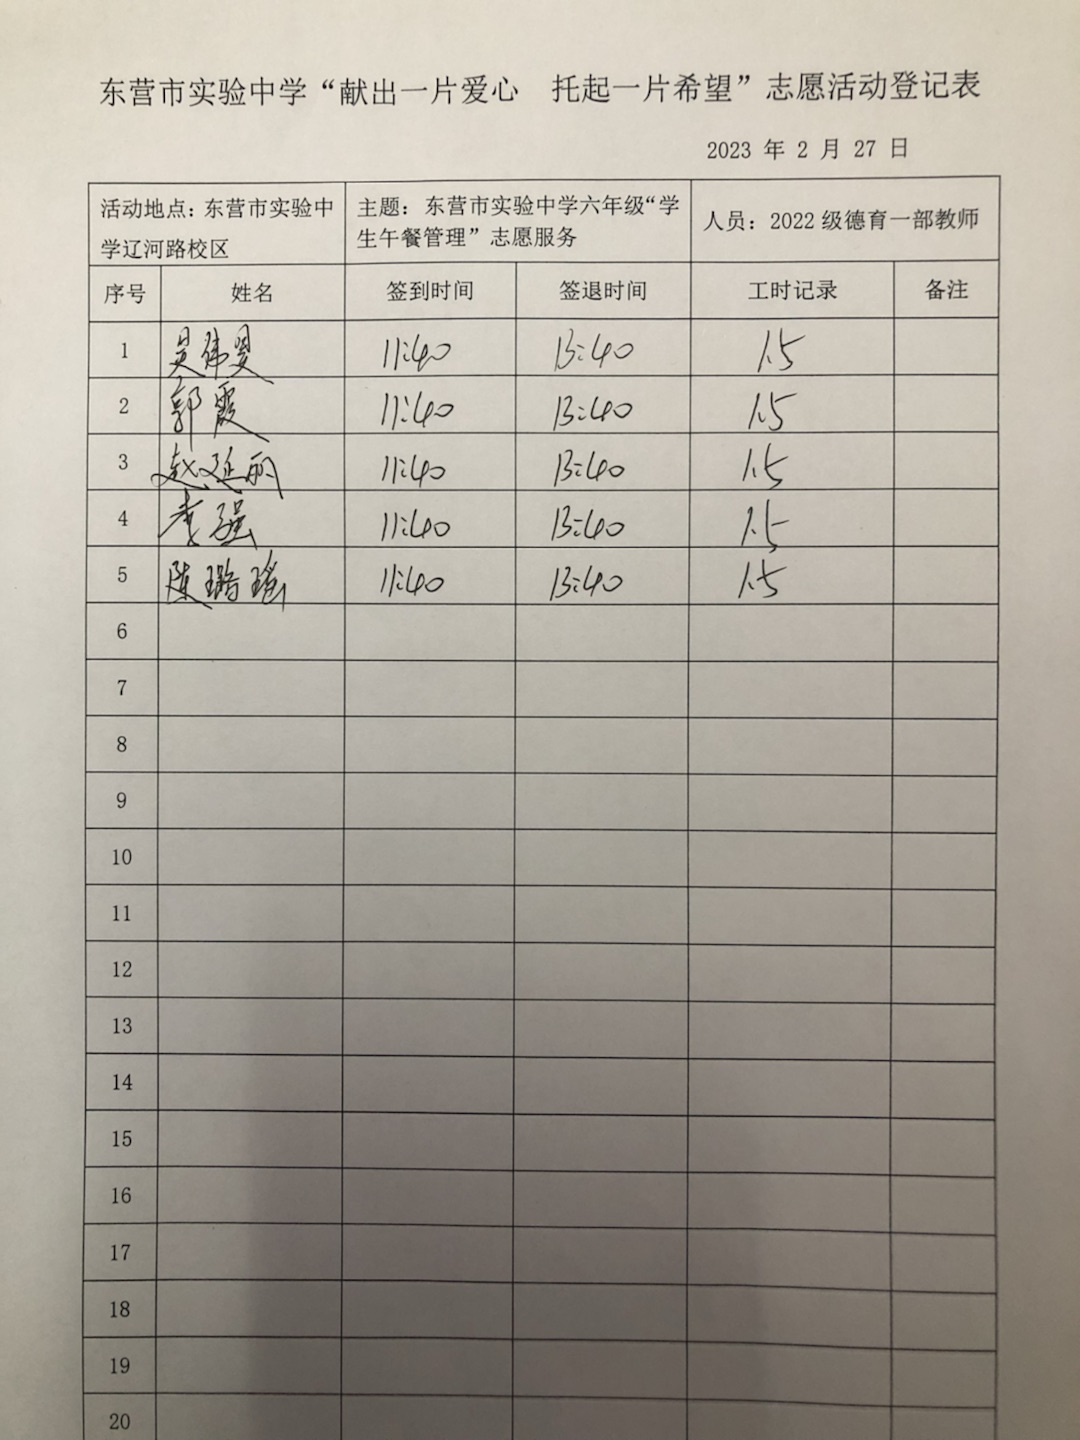 东营市实验中学“献出一片爱心 托起一片希望”志愿活动登记表
2023 年 2 月 27 日
活动地点：东营市实验中学辽河路校区 主题：东营市实验中学六年级“学生午餐管理”志愿服务 人员：2022 级德育一部教师
序号 姓名 签到时间 签退时间 工时记录 备注
1 吴伟 11:40 13:40 1.5
2 郭霞 11:40 13:40 1.5
3 赵延丽 11:40 13:40 1.5
4 李强 11:40 13:40 1.5
5 陈璐瑶 11:40 13:40 1.5
6
7
8
9
10
11
12
13
14
15
16
17
18
19
20